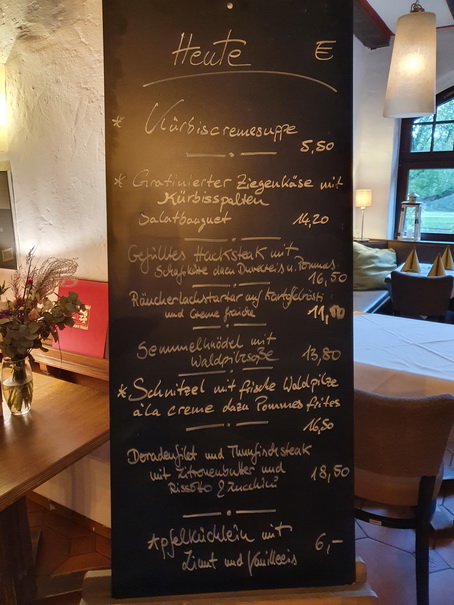 Heute €
* Kürbiscremesuppe
5,50
* Gratinierter Ziegenkäse mit
Kürbisspalten
Salatbouquet 14,20
Gefülltes Hacksteak mit
Schafskäse dazu u. Pommes
16,50
Räucherlachstartar auf Kartoffelrösti
und Creme fraiche 11,
Semmelknödel mit
Waldpilzsoße 13,80
* Schnitzel mit frische Waldpilze
a la creme dazu Pommes frites
16,50
Doradenfilet und Thunfischsteak
mit Zitronenbutter und
Risotto & Zucchini 18,50
Apfelküchlein mit 6,-
Zimt und Vanilleeis